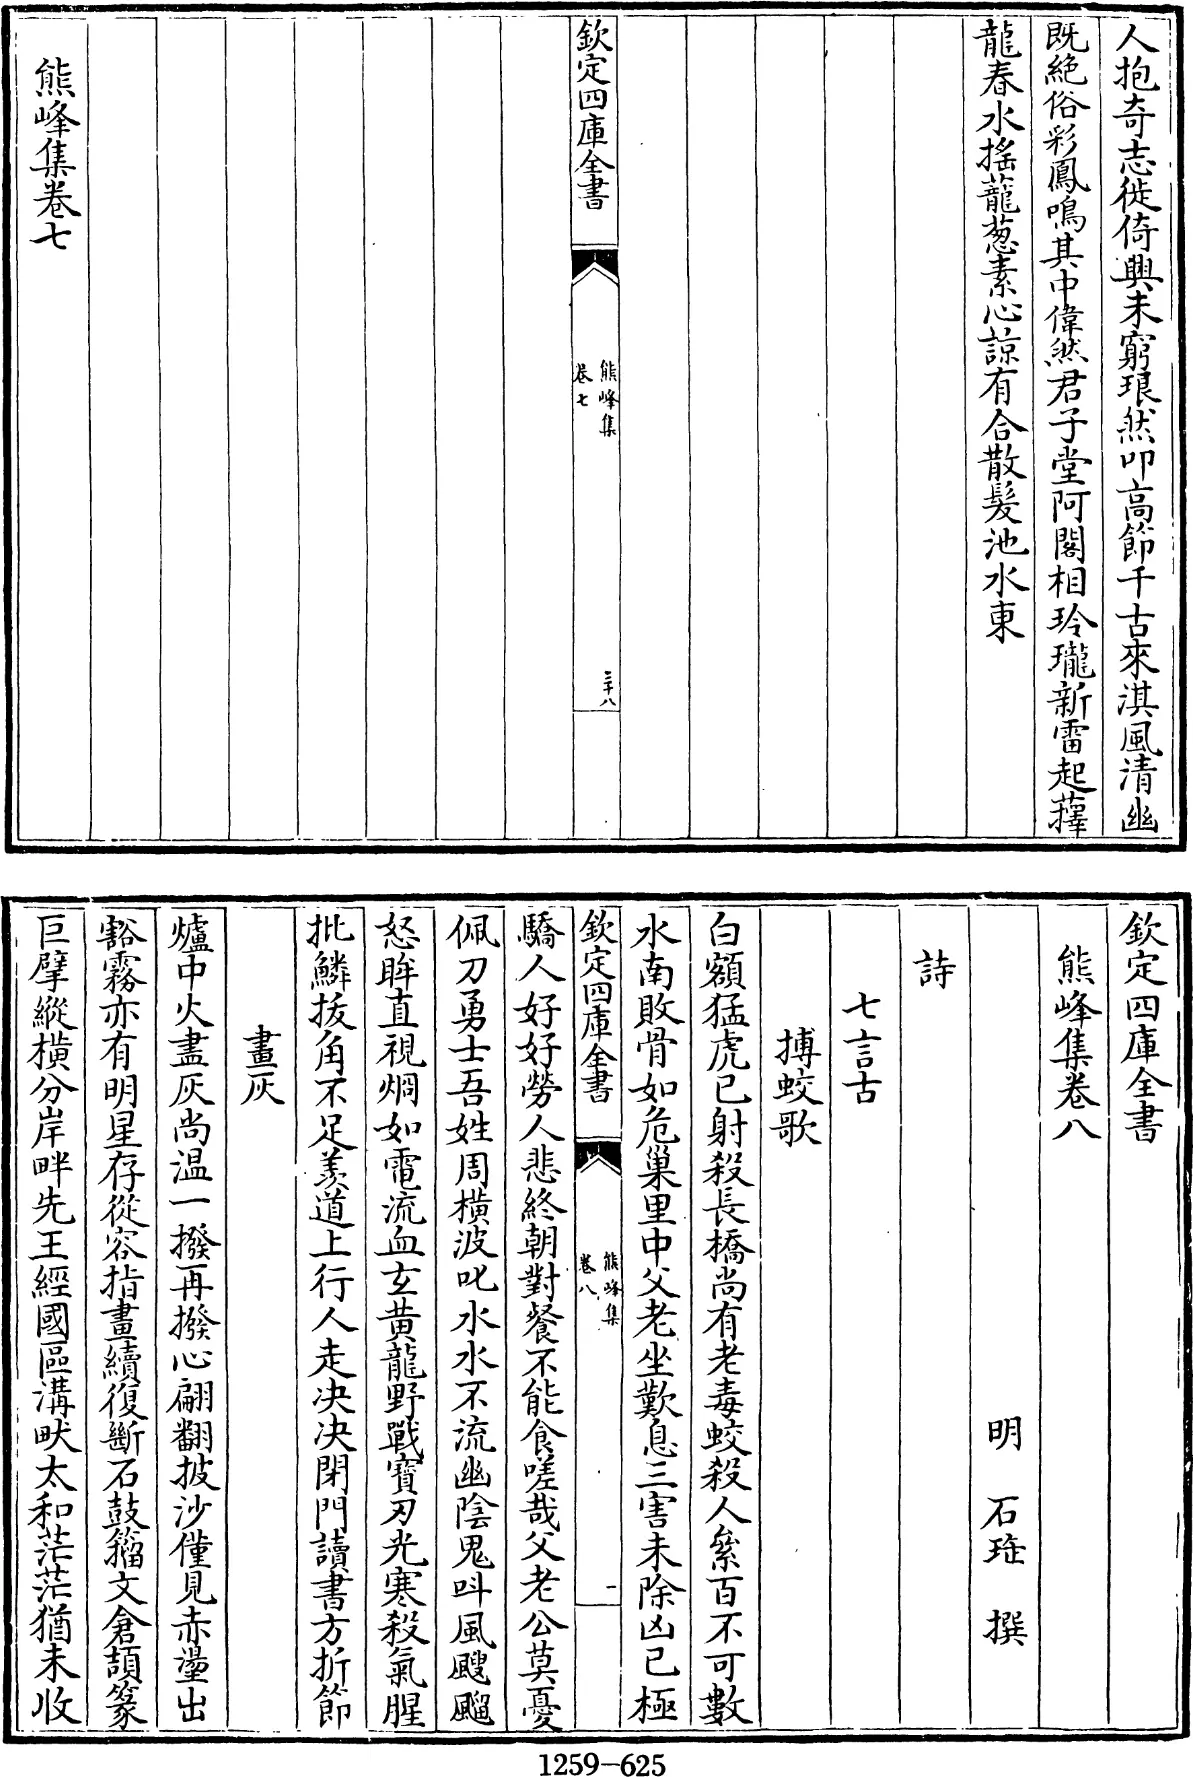 人抱奇志徙倚興未窮琅然叩高節千古來淇風清幽
既絶俗彩鳳鳴其中偉然君子堂阿閣相玲瓏新雷起蘀
龍春水搖蘢葱素心諒有合散髮池水東
欽定四庫全書
熊峰集
卷七
三十八
熊峰集卷七
欽定四庫全書
熊峰集卷八
明 石珤 撰
詩
七言古
搏蛟歌
白額猛虎已射殺長橋尚有老毒蛟殺人絫百不可數
水南敗骨如危巢里中父老坐歎息三害未除凶已極
欽定四庫全書
熊峰集
卷八
一
驕人好好勞人悲終朝對餐不能食嗟哉父老公莫憂
佩刀勇士吾姓周橫波叱水水不流幽陰鬼呌風颼飀
怒眸直視烱如電流血玄黄龍野戰寳刃光寒殺氣腥
批鱗拔角不足羡道上行人走決決閉門讀書方折節
畫灰
爐中火盡灰尚温一撥再撥心翩翻披沙僅見赤盪出
豁霧亦有明星存從容指畫續復斷石鼓籀文倉頡篆
巨擘縱橫分岸畔先王經國區溝畎太和茫茫猶未收
1259-625